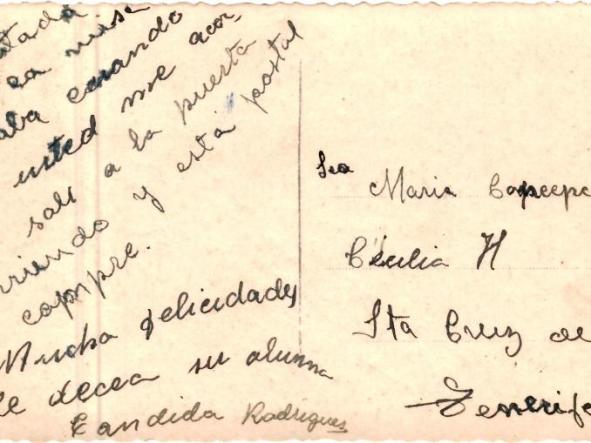 en la misa
cuando
usted me acor
sali a la puerta
corriendo y esta postal
compre.
Mucha felicidades
le decea su alunna
Candida Rodrigues
Sra
Maria
Cecilia H
Sta Cruz de
Tenerife